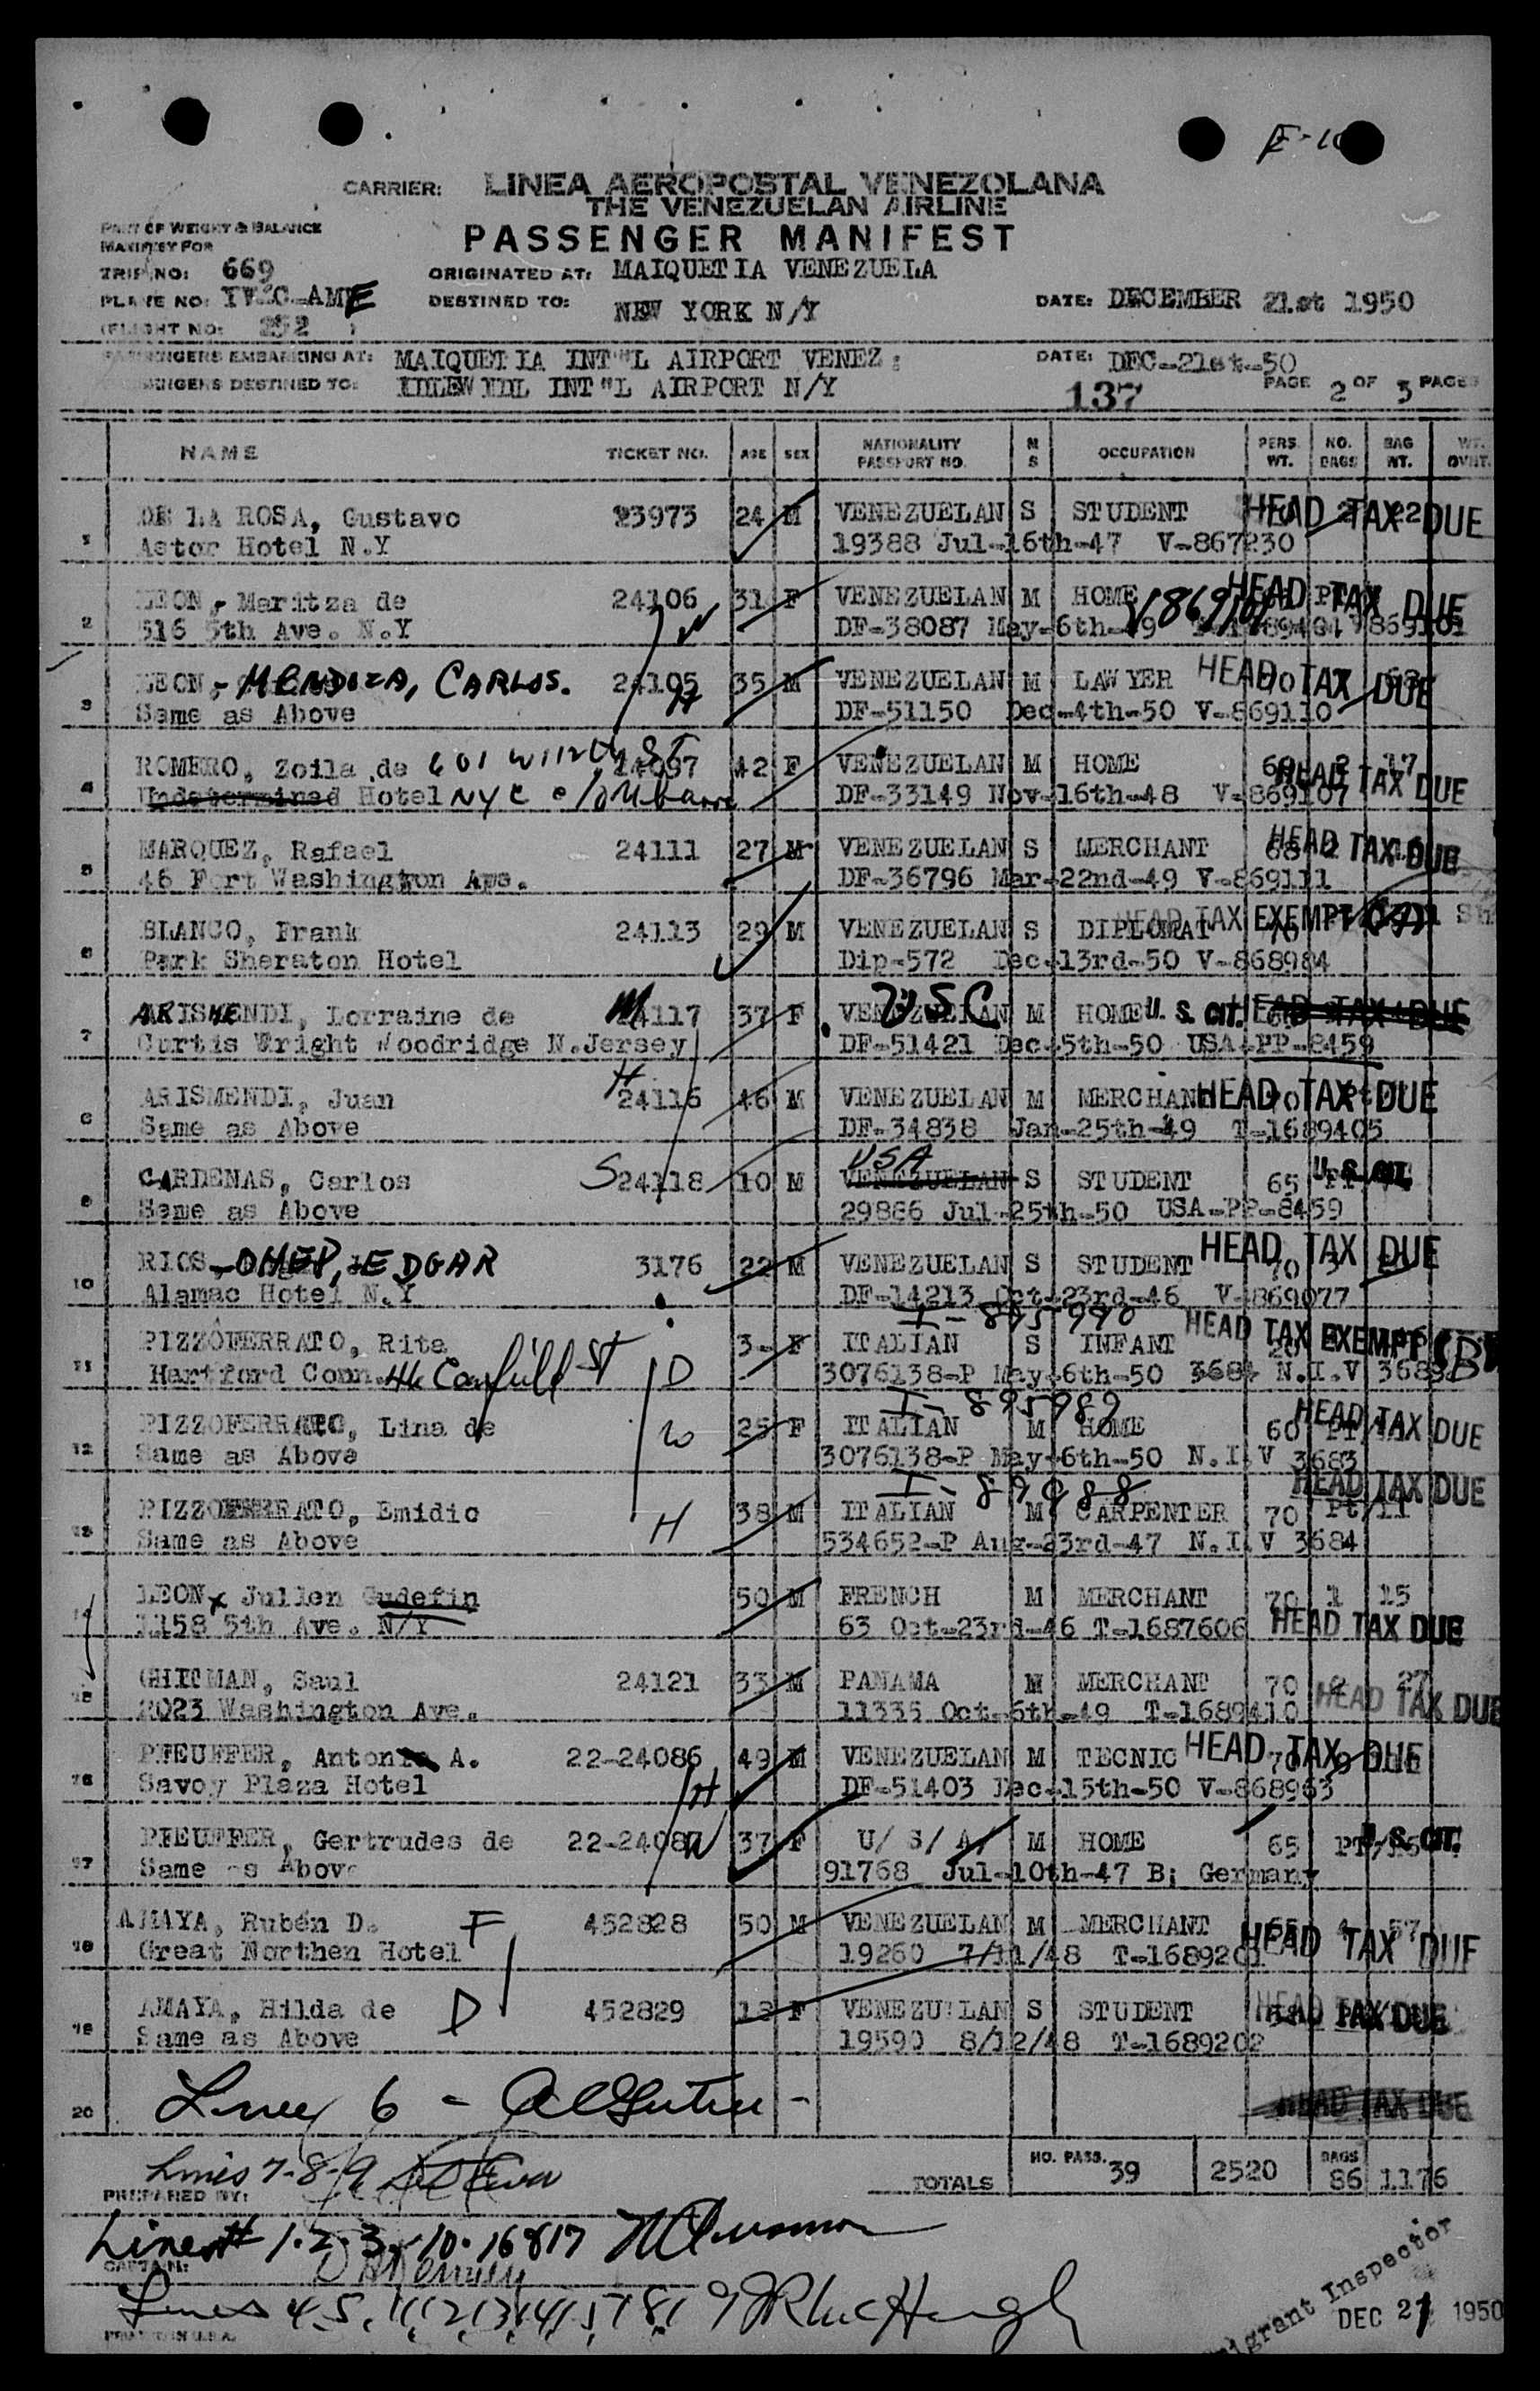 E-10
CARRIER: LINEA AEROPOSTAL VENEZOLANA
THE VENEZUELAN AIRLINE
PART OF WEIGHT & BALANCE
MANIFEST FOR
PASSENGER MANIFEST
TRIP NO: 669 ORIGINATED AT: MAIQUETIA VENEZUELA
PLANE NO: YV-C-AME DESTINED TO: NEW YORK N/Y DATE: DECEMBER 21st 1950
(FLIGHT NO: 252 )
PASSENGERS EMBARKING AT: MAIQUETIA INT"L AIRPORT VENEZ: DATE: DEC-21st-50
PASSENGERS DESTINED TO: IDLEWIDL INT"L AIRPORT N/Y 137 PAGE 2 OF 3 PAGES
NAME TICKET NO. AGE SEX NATIONALITY PASSPORT NO. M S OCCUPATION PERS. WT. NO. BAGS BAG WT. WT. OVHT.
1 DE LA ROSA, Gustavo 23973 24 M VENEZUELAN S STUDENT 22 HEAD TAX DUE
Astor Hotel N.Y 19388 Jul-16th-47 V-867230
2 LEON, Maritza de 24106 31 F VENEZUELAN M HOME HEAD TAX DUE
516 5th Ave. N.Y W DF-38087 May-6th-49 869101
3 LEON, - MENDOZA, CARLOS. 24105 35 M VENEZUELAN M LAWYER 70 HEAD TAX DUE
Same as Above H DF-51150 Dec-4th-50 V-869110
4 ROMERO, Zoila de 601 W 112th ST 24097 42 F VENEZUELAN M HOME 60 2 17 HEAD TAX DUE
Undetermined Hotel NYC c/o DF-33149 Nov-16th-48 V-869107
5 MARQUEZ, Rafael 24111 27 M VENEZUELAN S MERCHANT 68 2 HEAD TAX DUE
46 Fort Washington Ave. DF-36796 Mar-22nd-49 V-869111
6 BLANCO, Frank 24113 29 M VENEZUELAN S DIPLOMAT 70 HEAD TAX EXEMPT
Park Sheraton Hotel Dip-572 Dec-13rd-50 V-868984
7 ARISMENDI, Lorraine de W 24117 37 F VENEZUELAN USC M HOME U. S. CIT. HEAD TAX DUE
Curtis Wright Woodridge N.Jersey DF-51421 Dec-5th-50 USA-PP-8459
8 ARISMENDI, Juan H 24116 46 M VENEZUELAN M MERCHANT 70 HEAD TAX DUE
Same as Above DF-34838 Jan-25th-49 T-1689405
9 CARDENAS, Carlos S 24118 10 M VENEZUELAN USA S STUDENT 65 U. S. CIT.
Same as Above 29886 Jul-25th-50 USA-PP-8459
10 RIOS, -OMER, EDGAR 3176 22 M VENEZUELAN S STUDENT 70 3 HEAD TAX DUE
Alamac Hotel N.Y DF-14213 Oct-23rd-46 V-869077
I-895990
11 PIZZOFERRATO, Rita 3- F ITALIAN S INFANT 20 HEAD TAX EXEMPT
Hartford Conn. 44 Canfield ST D 3076138-P May-6th-50 3684 N.I.V 3683
I-895989
12 PIZZOFERRATO, Lina de W 25 F ITALIAN M HOME 60 HEAD TAX DUE
Same as Above 3076138-P May-6th-50 N.I.V 3683
13 PIZZOFERRATO, Emidio H 38 M ITALIAN M CARPENTER 70 Pt/11 HEAD TAX DUE
Same as Above 534652-P Aug-23rd-47 N.I.V 3684
14 LEON x Julien Gudefin 50 M FRENCH M MERCHANT 70 1 15
1158 5th Ave. N/Y 63 Oct-23rd-46 T-1687606 HEAD TAX DUE
15 GHITMAN, Saul 24121 33 M PANAMA M MERCHANT 70 2 27
2023 Washington Ave. 11335 Oct-6th-49 T-1689410 HEAD TAX DUE
16 PFEUFFER, Antonio A. 22-24086 49 M VENEZUELAN M TECNIC 70 HEAD TAX DUE
Savoy Plaza Hotel H DF-51403 Dec-15th-50 V-868963
17 PFEUFFER, Gertrudes de 22-24087 W 37 F U/ S/ A/ M HOME 65 U. S. CIT.
Same as Above 91768 Jul-10th-47 B; Germany
18 AMAYA, Rubén D. F 452828 50 M VENEZUELAN M MERCHANT 65 4 57 HEAD TAX DUE
Great Northen Hotel 19260 7/11/48 T-1689201
19 AMAYA, Hilda de D 452829 18 F VENEZUELAN S STUDENT 58 HEAD TAX DUE
Same as Above 19590 8/12/48 T-1689202
20 Line 6 - HEAD TAX DUE
Lines 7-8-9
TOTALS NO. PASS. 39 2520 BAGS 86 1176
PREPARED BY:
Lines# 1-2-3-10-16&17
CAPTAIN:
Lines 4,5,11,12,13,14,15,18,19 JR McHugh
PRINTED IN U.S.A.
Immigrant Inspector
DEC 21 1950